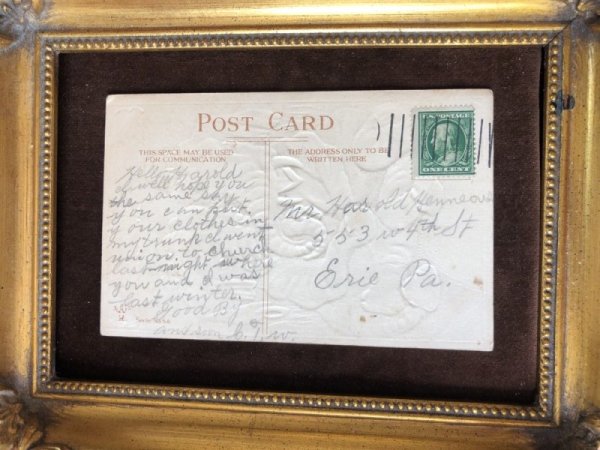 POST CARD
THIS SPACE MAY BE USED
FOR COMMUNICATION
THE ADDRESS ONLY TO BE
WRITTEN HERE
U.S. POSTAGE
ONE CENT
Hello Harold
well hope you
the same say
you can put
your clothes in
my trunk
to church
last night where
you and I was
last winter.
Good By
Mr Harold
553 W 4th St
Erie Pa.